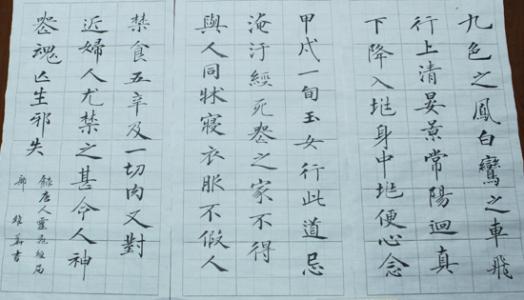 九色之鳳白鸞之車飛
行上清晏景常陽迴真
下降入地身中地便心念
甲戌一旬玉女行此道忌
淹汙經死喪之家不得
與人同牀寢衣服不假人
禁食五辛及一切肉又對
近婦人尤禁之甚令人神
喪魂亡生邪失
錄唐人靈飛經局
部 雄 書